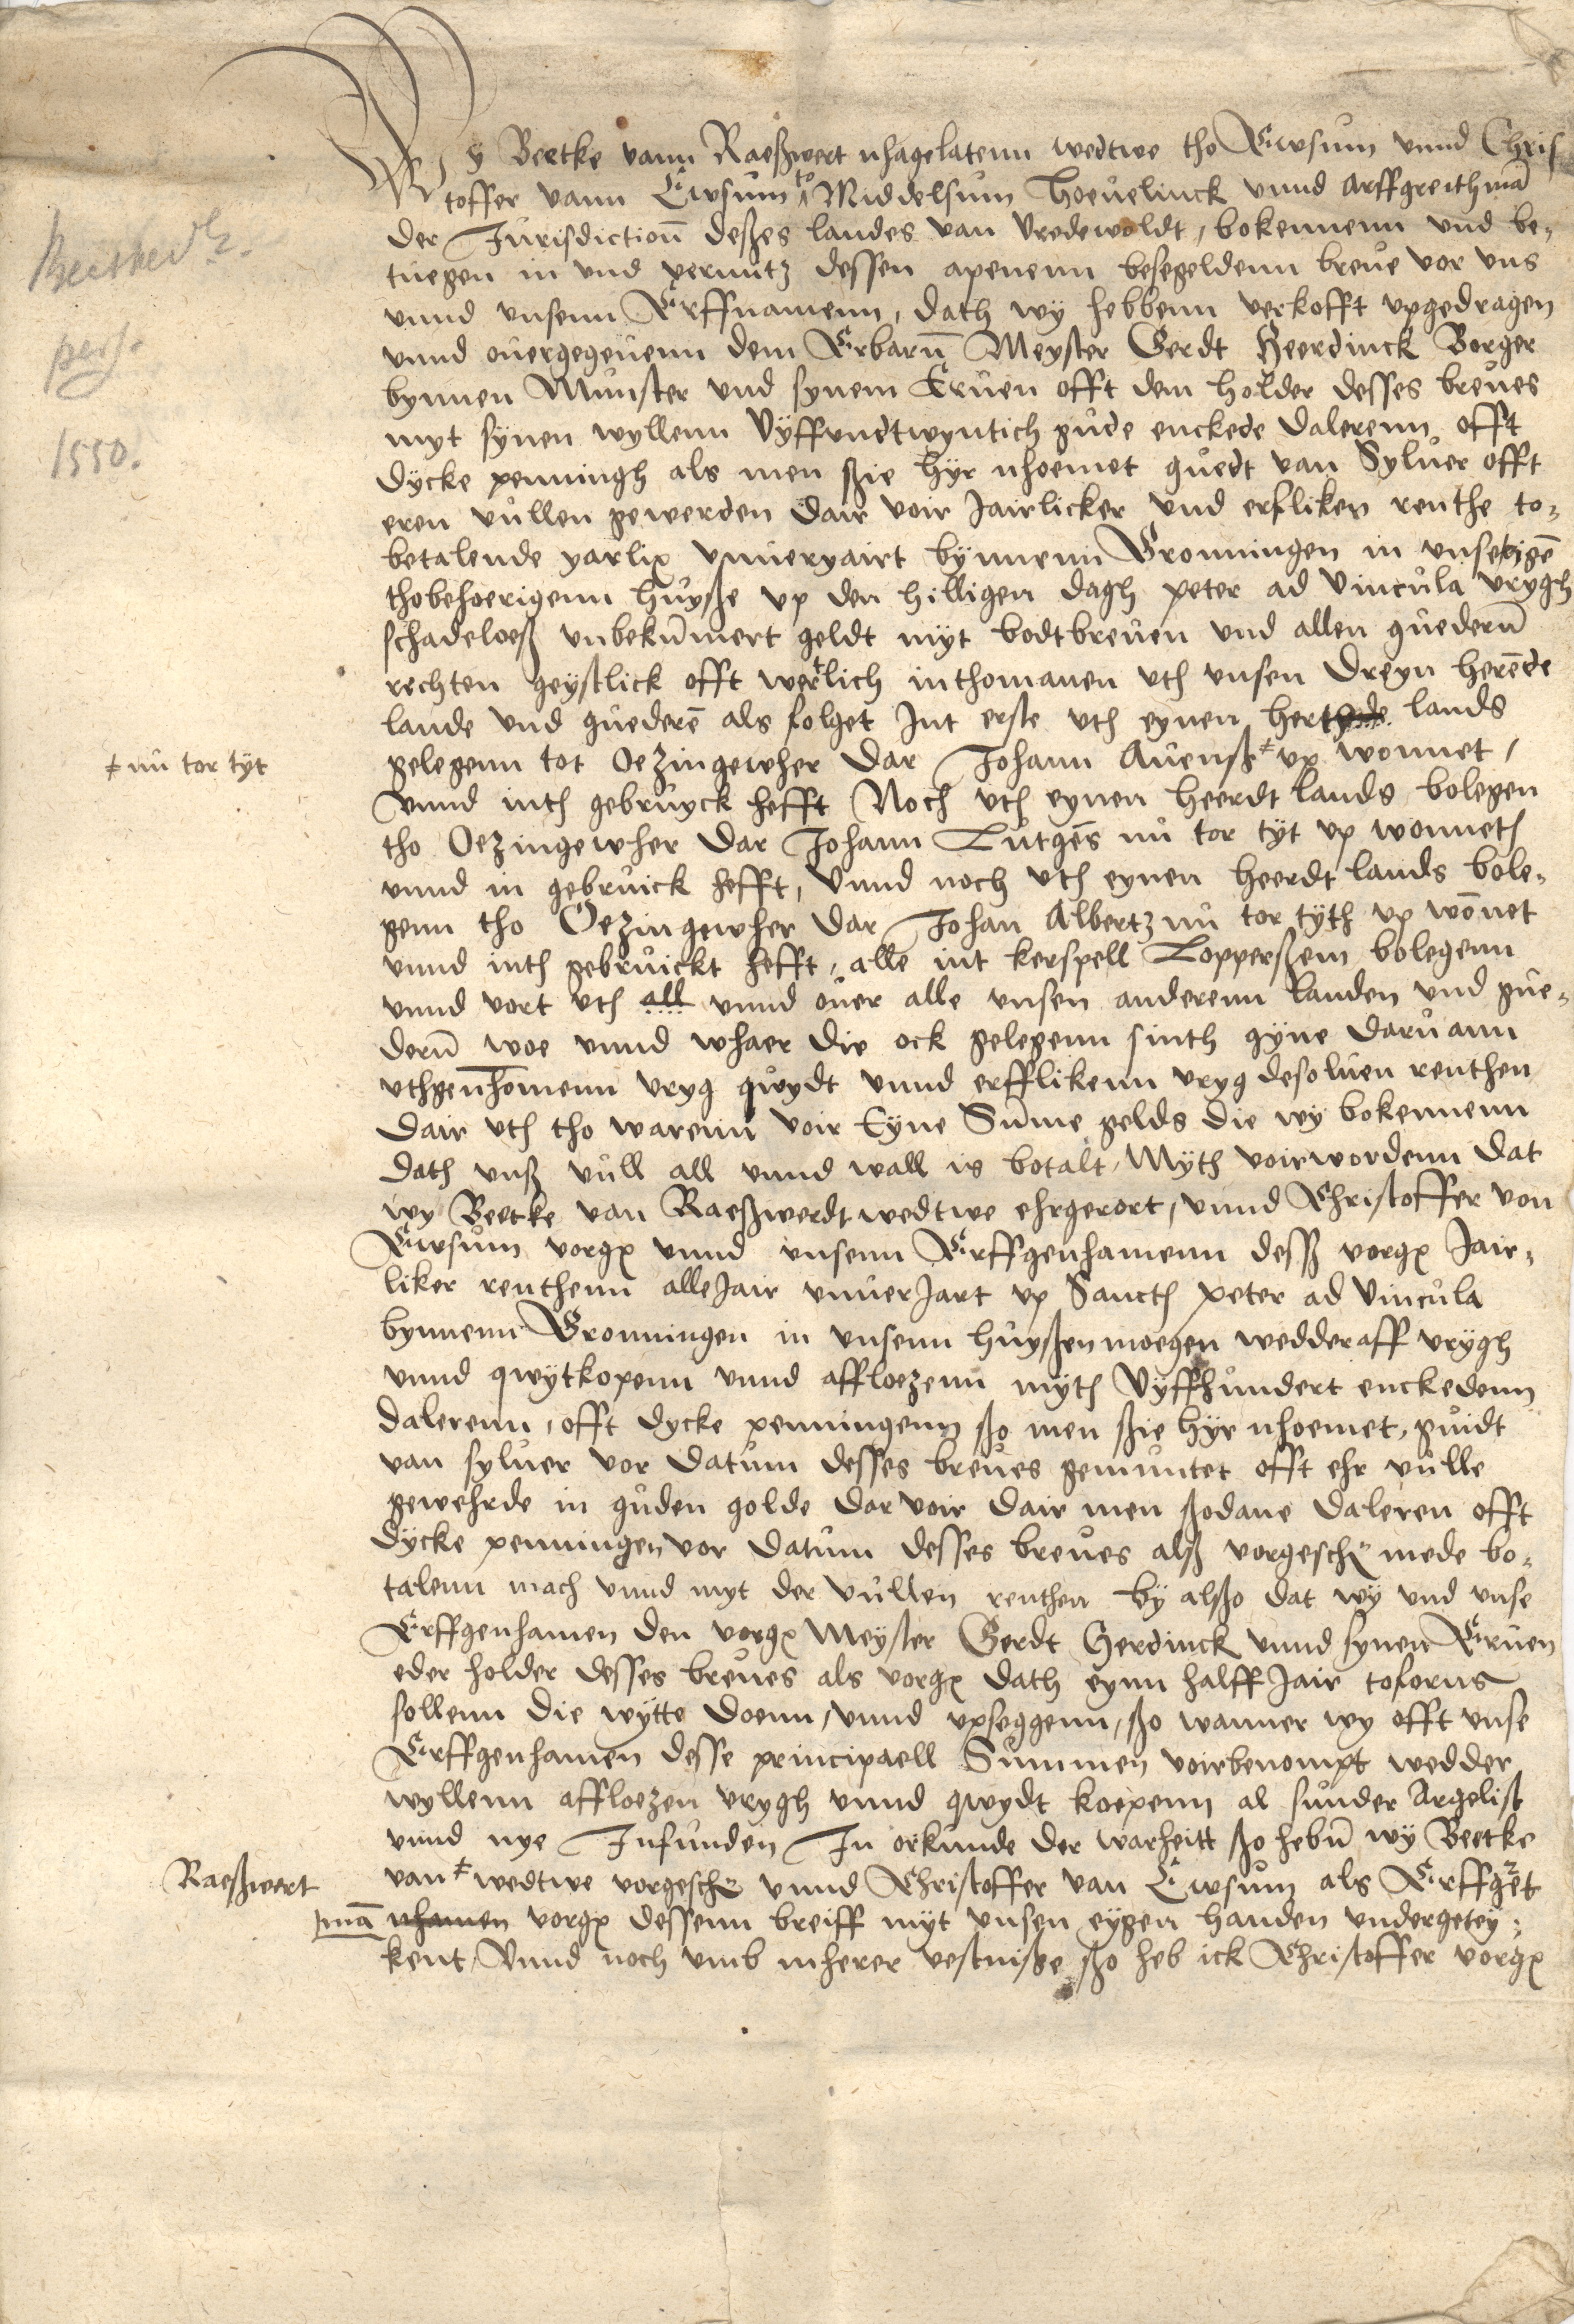 Wy Beetke vann Raeßwert nhagelatenn wedtwe tho Ewsum vnnd Chris
toffer vann Ewsum to Middelsum Hoeuelinck vnnd Arffgreithmā
der Jurisdictionn deßes landes van Vredewoldt, bokennenn vnd be,
tuegen in vnd vermitz dessen apenenn besegeldenn breue vor vns
vnnd vnsenn Erffnamenn, dath wy hebbenn verkofft vpgedragen
vnnd ouergegeuenn dem Erbarn̄ Meyster Gerdt Heerdinck Borger
bynnen Munster vnd synem Eruen offt dem holder desses breues
myt synen wyllenn Vyffvndtwyntich gude enckede dalerenn offt
dycke penningh als men ßie hyr nhoemet guedt van Syluer offt
eren vullen gewerden dair voir Jairlicker vnd erfliken renthe to,
betalende yarlix vnueryairt bynnenn Gronningen in vnse eigē
thobehoerigenn huyße vp den hilligen dagh peter ad Vincula vrygh
schadeloeß vnbekūmert geldt myt bodtbreuen vnd allen guedern̄
rechten geystlick offt wertlich inthomanen vth vnsen dreyn herēde
lande vnd guederē als folget Int erste vth eynen herthde lands
≠ nu tor tyt
gelegenn tot Oezingewher dar Johann Auenß ≠ vp wonnet,
vnnd inth gebruyck hefft Noch vth eynen heerdt lands bolegen
tho Oezingewher dar Johann Lutgēs nu tor tyt vp wonneth
vnnd in gebruick hefft, Vnnd noch vth eynen heerdt lands bole,
genn tho Oezingewher dar Johan Albertz nu tor tyth vp wōnet
vnnd inth gebruickt hefft, alle int kerspell Loppersßem bolegenn
vnnd vort vth all vnnd ouer alle vnsen anderenn landen vnd gue,
dern̄ woe vnnd whaer die ock gelegenn sinth gyne daruann
vthgenhomenn vryg quydt vnnd erfflikenn vryg desoluen renthen
dair vth tho warenn voir Eyne Sūme gelds die wy bokennenn
dath vnß vull all vnnd wall is botalt, Myth voirwordenn dat
wy Beetke van Raeßwerdt wedtwe ehrgerort, vnnd Christoffer von
Ewsum vorgx vnnd vnsenn Erffgenhamenn desß vorgx Jair,
liker renthenn alle Jair vnuerJart vp Sancth peter ad Vincula
bynnenn Gronningen in vnsenn huyßen moegen wedderaff vrygh
vnnd qwytkopenn vnnd affloezenn myth Vyffhundert enckedenn
dalerenn, offt dycke penningenn ßo men ßie hyr nhoemet, guidt
van syluer vor datum desses breues gemuntet offt ehr vulle
gewehrde in guden golde dar voir dair men ßodane daleren offt
dycke penningen vor datum desses breues alß vorgeschr mede bo,
talenn mach vnnd myt der vullen renthen by alßo dat wy vnd vnse
Erffgenhamen den vorgx Meyster Gerdt Herdinck vnnd synen Eruen
eder holder desses breues als vorgx dath eynn halff Jair toforns
sollenn die wytte doenn, vnnd vpseggenn, ßo wanner wy offt vnse
Erffgenhamen desse principaell Summen voirbenompt wedder
wyllenn affloezen vrygh vnnd qwydt koepenn al sunder Argelist
vnnd nye Infunden In orkunde der warheitt ßo hebn̄ wy Beetke
Raeßwert
van ≠ wedtwe vorgeschr vnnd Christoffer van Ewsum als Erffgret
mā nhamen vorgx dessenn breiff myt vnsen eygen handen vndergetey,
kent, Vnnd noch vmb mherer vestniße ßo heb ick Christoffer vorgx
1550.